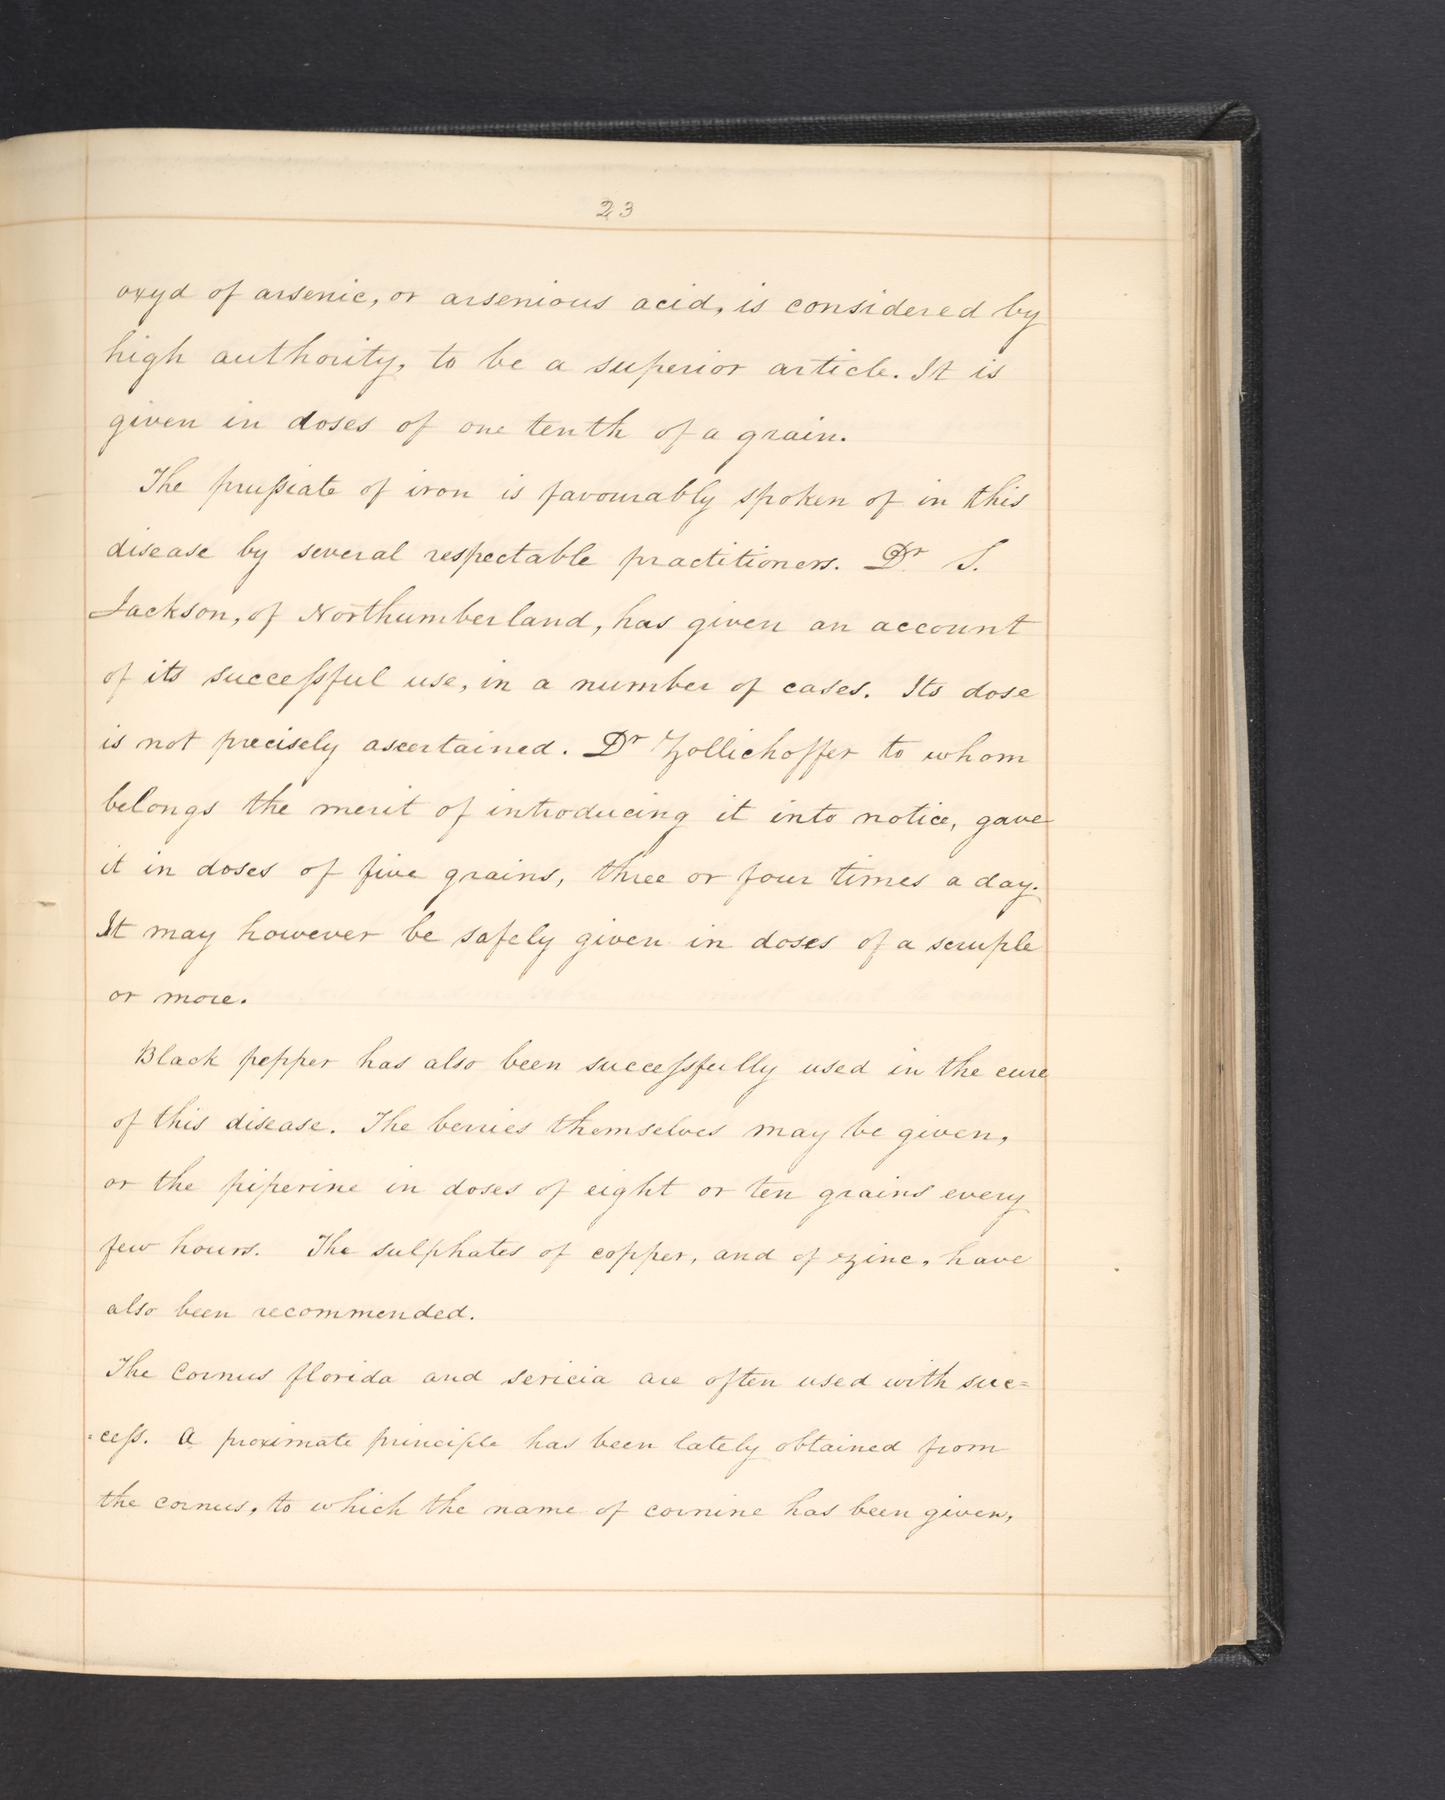 23
oxyd of arsenic, or arsenious acid, is considered by
high authority, to be a superior article. It is
given in doses of one tenth of a grain.
The prussiate of iron is favourably spoken of in this
disease by several respectable practitioners. Dr. S.
Jackson, of Northumberland, has given an account
of its successful use, in a number of cases. Its dose
is not precisely ascertained. Dr Zollichoffer to whom
belongs the merit of introducing it into notice, gave
it in doses of five grains, three or four times a day.
It may however be safely given in doses of a scruple
or more.
Black pepper has also been successfully used in the cure
of this disease. The berries themselves may be given,
or the piperine in doses of eight or ten grains every
few hours. The sulphates of copper, and of zinc, have
also been recommended.
The Cornus florida and sericia are often used with suc=
=cess. A proximate principle has been lately obtained from
the cornus, to which the name of cornine has been given,